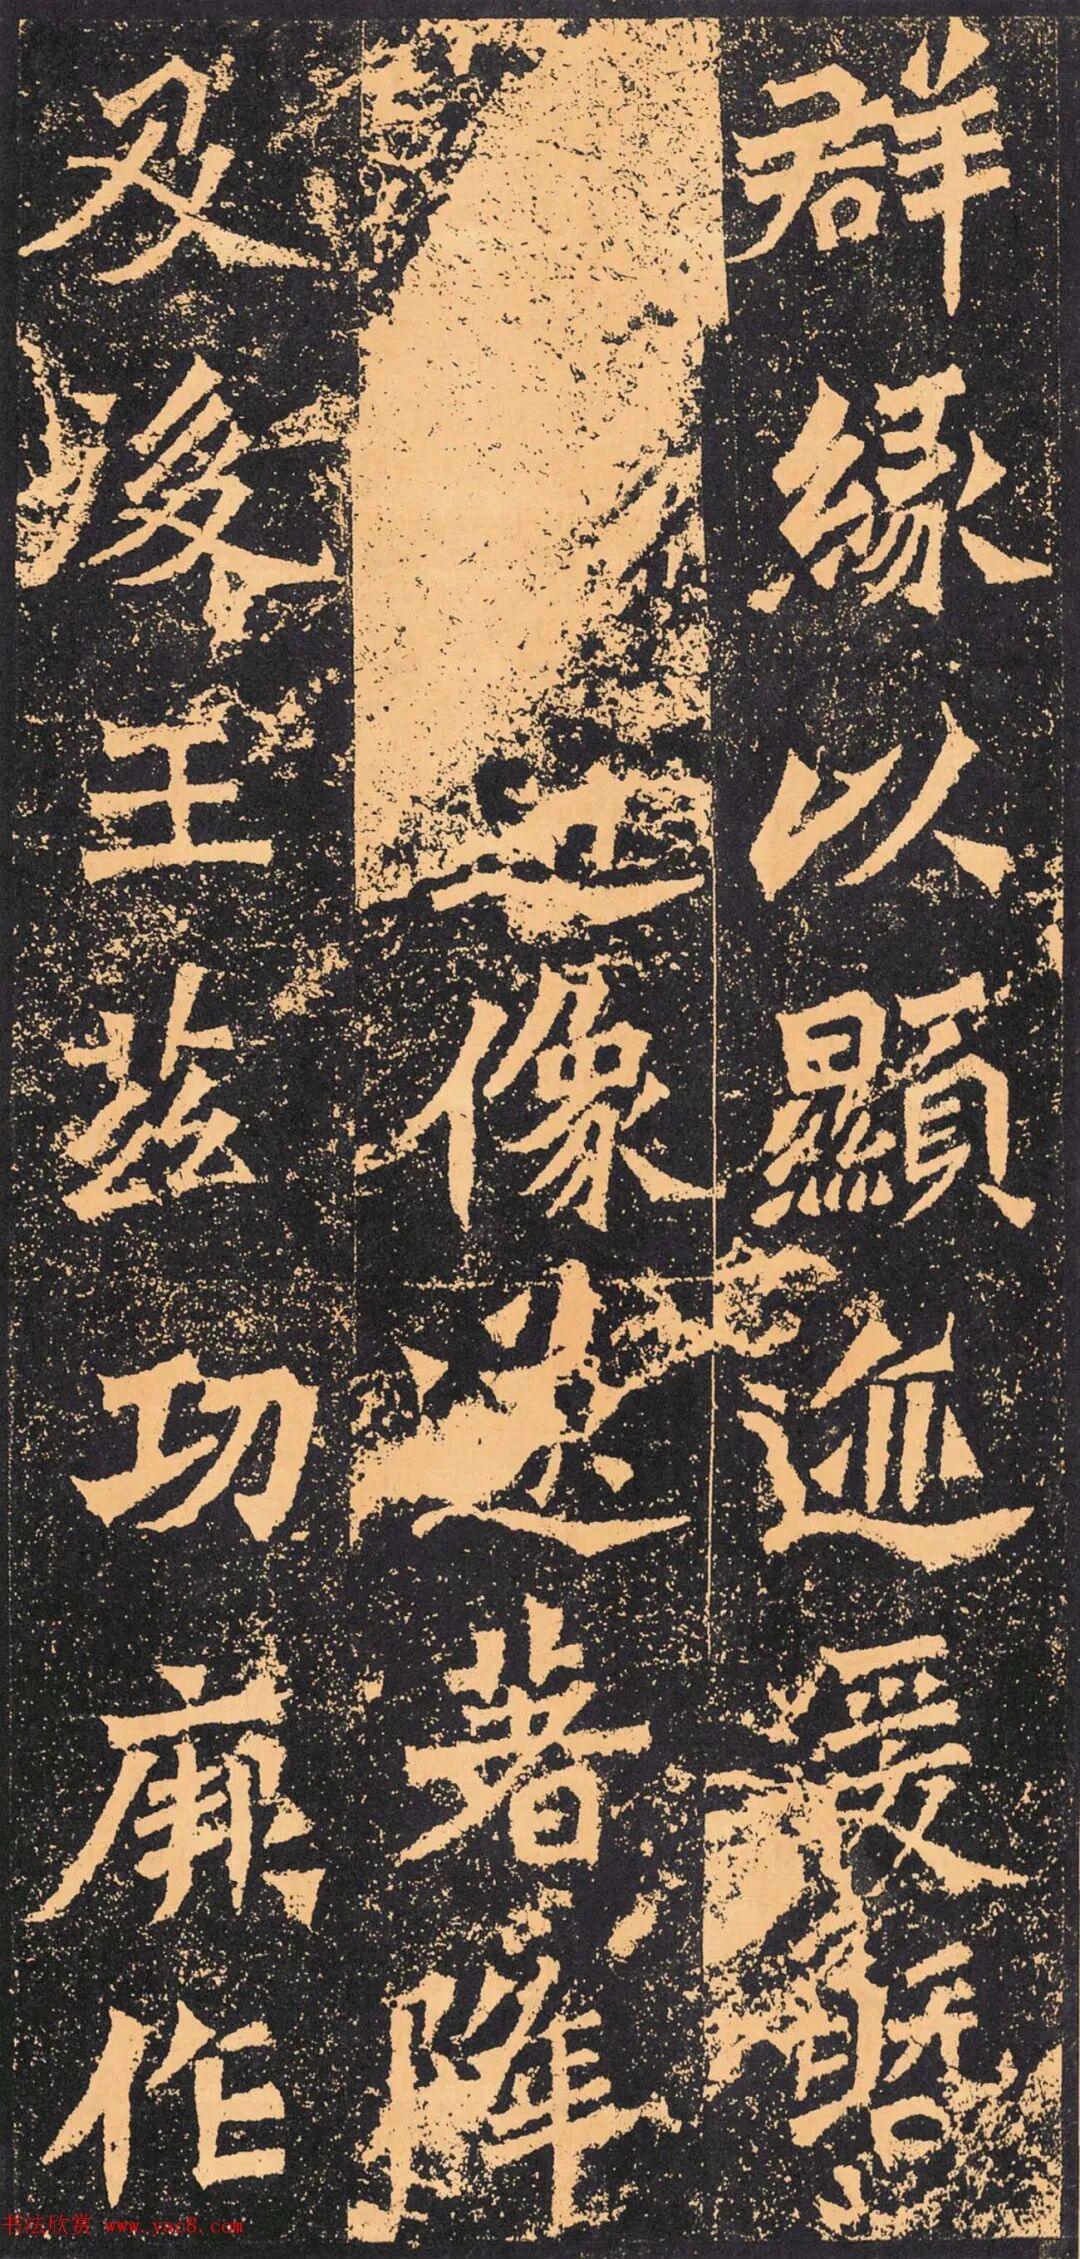 群緣以顯迹爰暨
像遂著降
及後王茲功厥作
书法欣赏 www.yac8.com